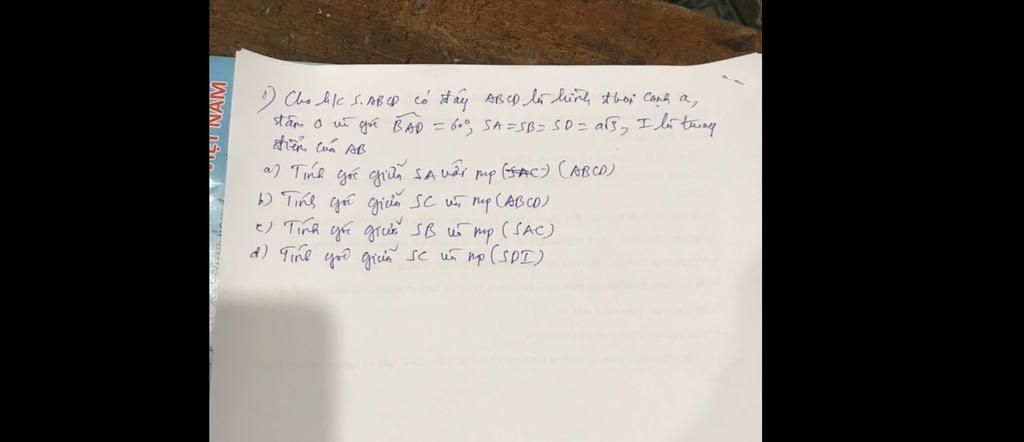 VIỆT NAM
1) Cho h/c S.ABCD có đáy ABCD là hình thoi cạnh a,
tâm O và góc BAD = 60°, SA = SB = SD = a√3, I là trung
điểm của AB
a) Tính góc giữa SA với mp (SAC) (ABCD)
b) Tính góc giữa SC và mp (ABCD)
c) Tính góc giữa SB và mp (SAC)
d) Tính góc giữa SC và mp (SDI)